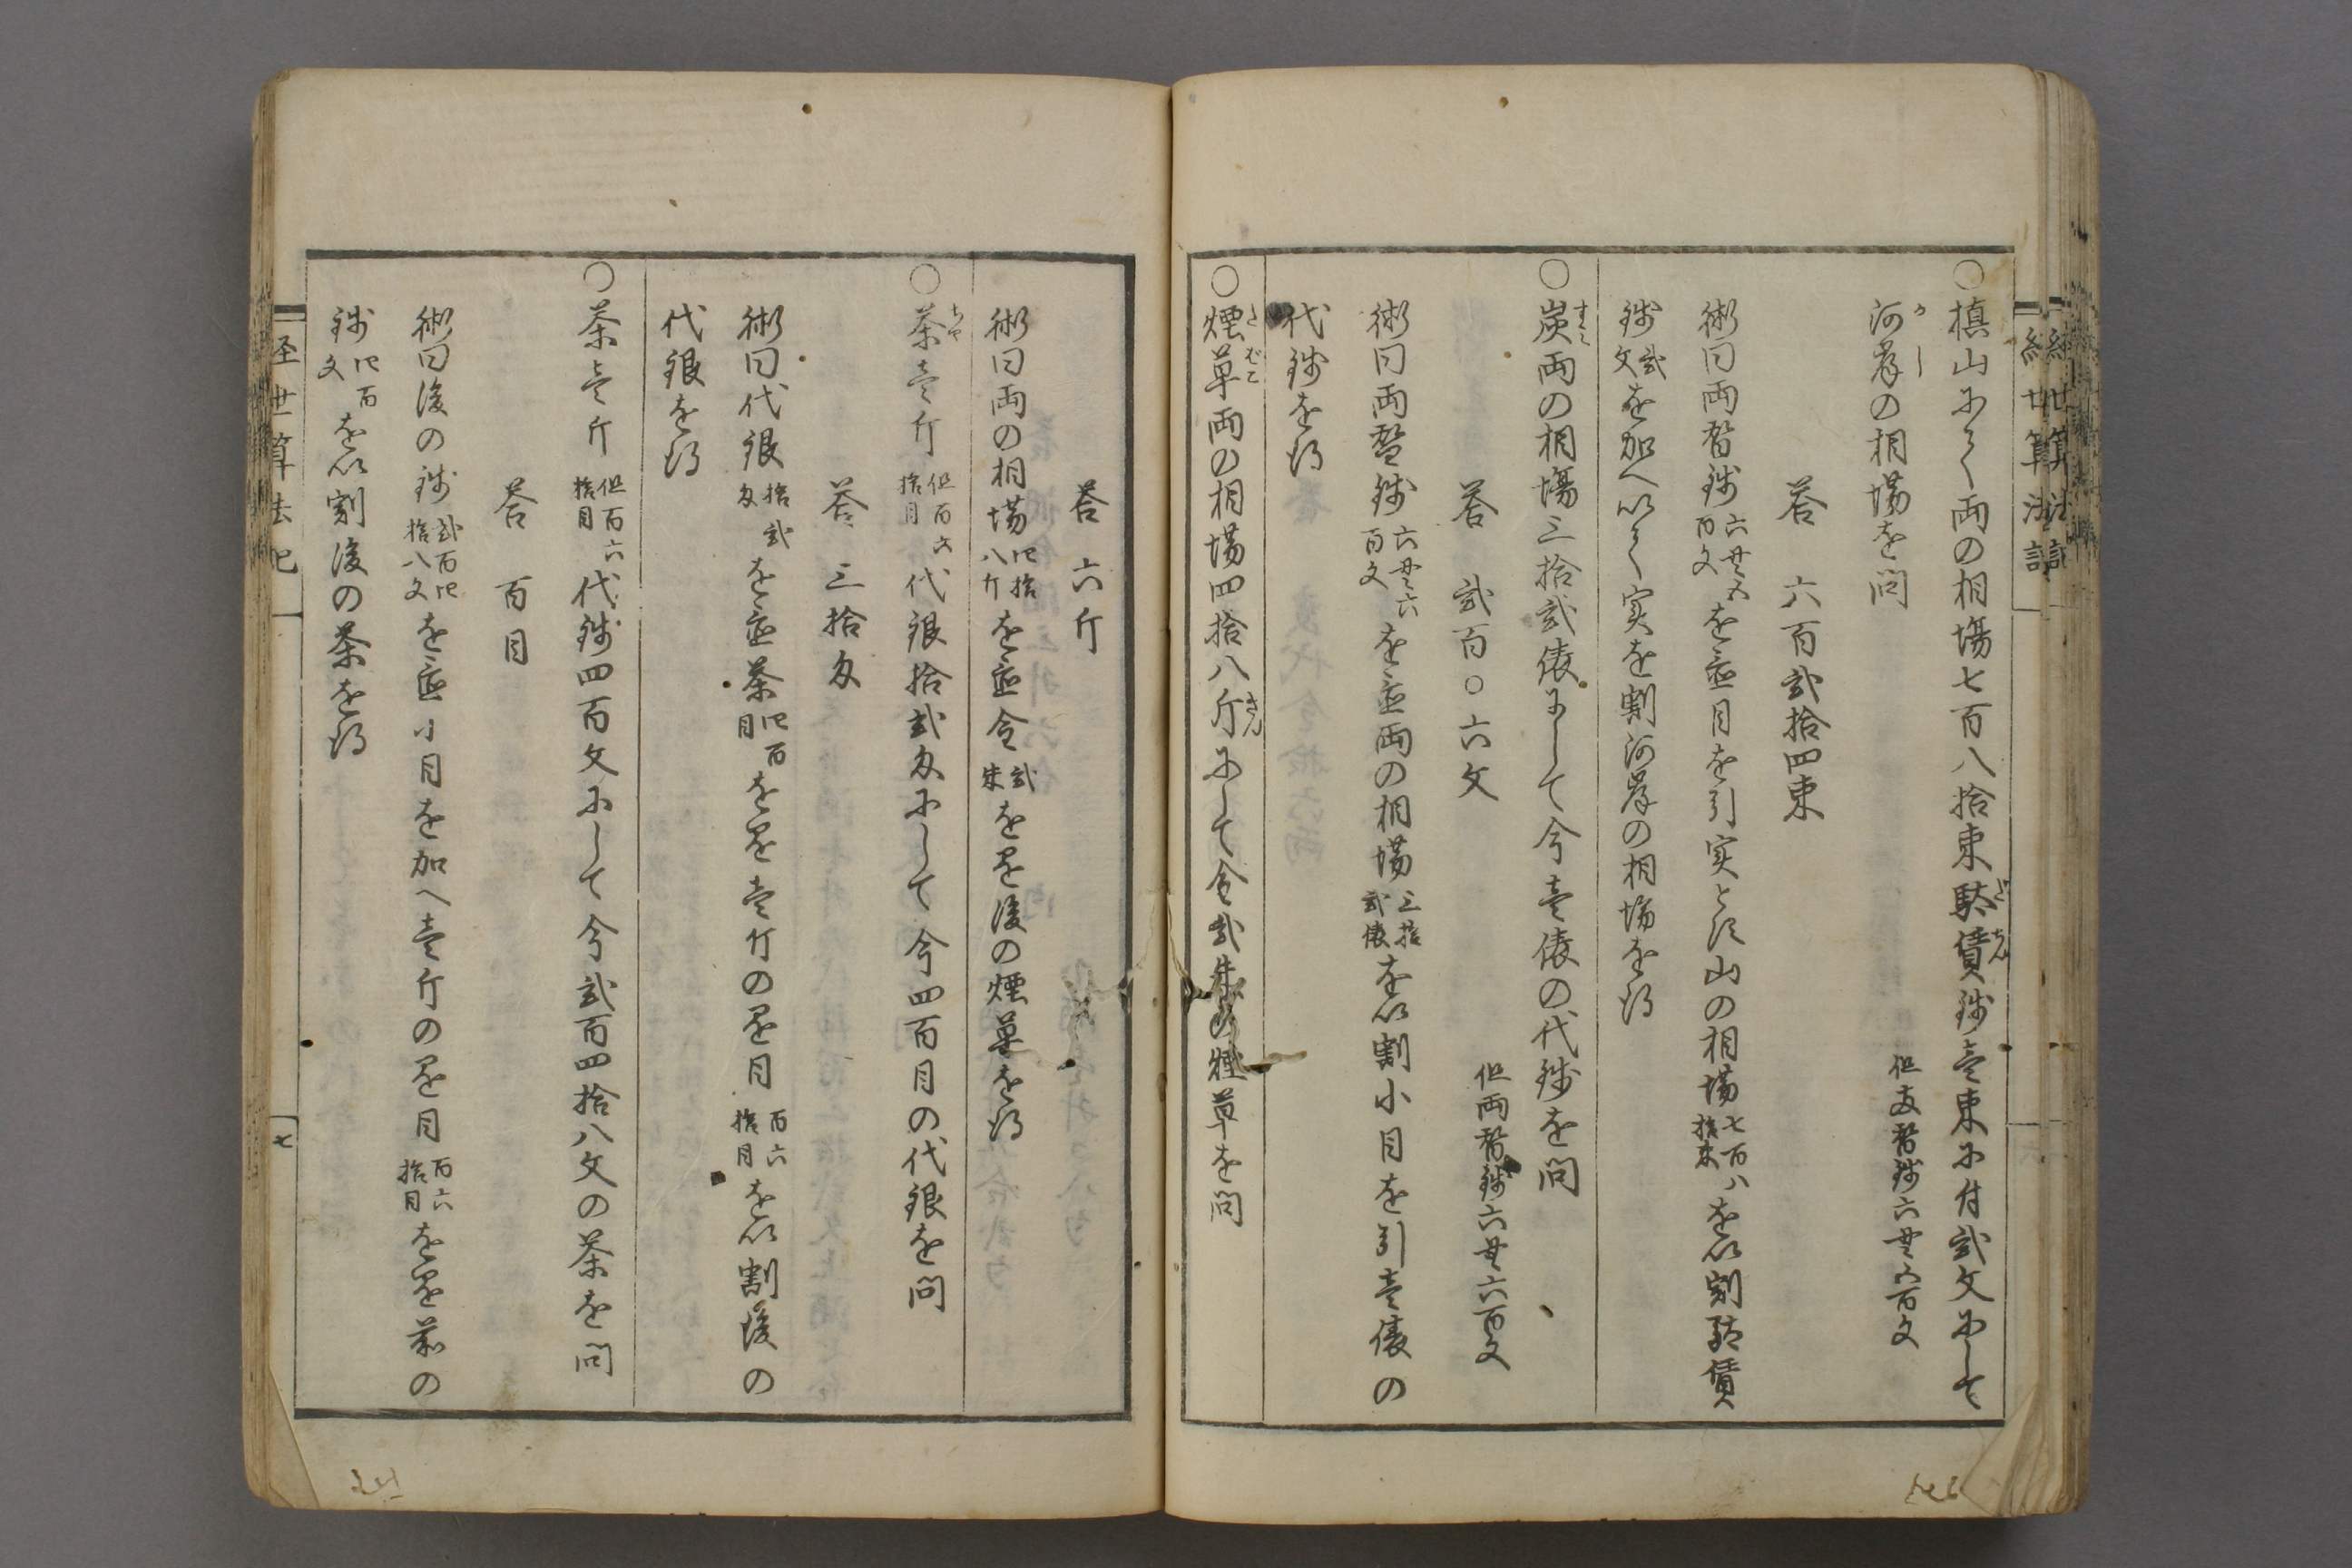 ○槙山ニて両の相場七百八拾束駄賃銭壱束ニ付弐文ニして
河岸の相場を問 但両替銭六貫五百文
答 六百弐拾四束
術曰両替銭六貫五百文を置目を引実と〆山の相場七百八拾束を以割駄賃
銭弐文を加へ以て実を割河岸の相場を得
○炭両の相場三拾弐俵ニして今壱俵の代銭を問
答 弐百〇六文 但両替銭六貫六百文
術曰両替銭六貫六百文を置両の相場三拾弐俵を以割小目を引壱俵の
代銭を得
○煙草両の相場四拾八斤ニして金弐朱の煙草を問
答 六斤
術曰両の相場四拾八斤を置金弐朱を乗後の煙草を得
○茶壱斤但百六拾目代銀拾弐匁ニして今四百目の代銀を問
答 三拾匁
術曰代銀拾弐匁を置茶四百目を乗壱斤の量目百六拾目を以割後の
代銀を得
○茶壱斤但百六拾目代銭四百文ニして今弐百四拾八文の茶を問
答 百目
術曰後の銭弐百四拾八文を置小目を加へ壱斤の量目百六拾目を乗前の
銭四百文を以割後の茶を得
経世算法記
七